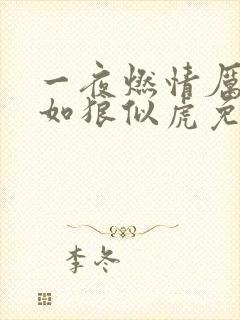 一夜燃情厲
如狼似虎免
李冬